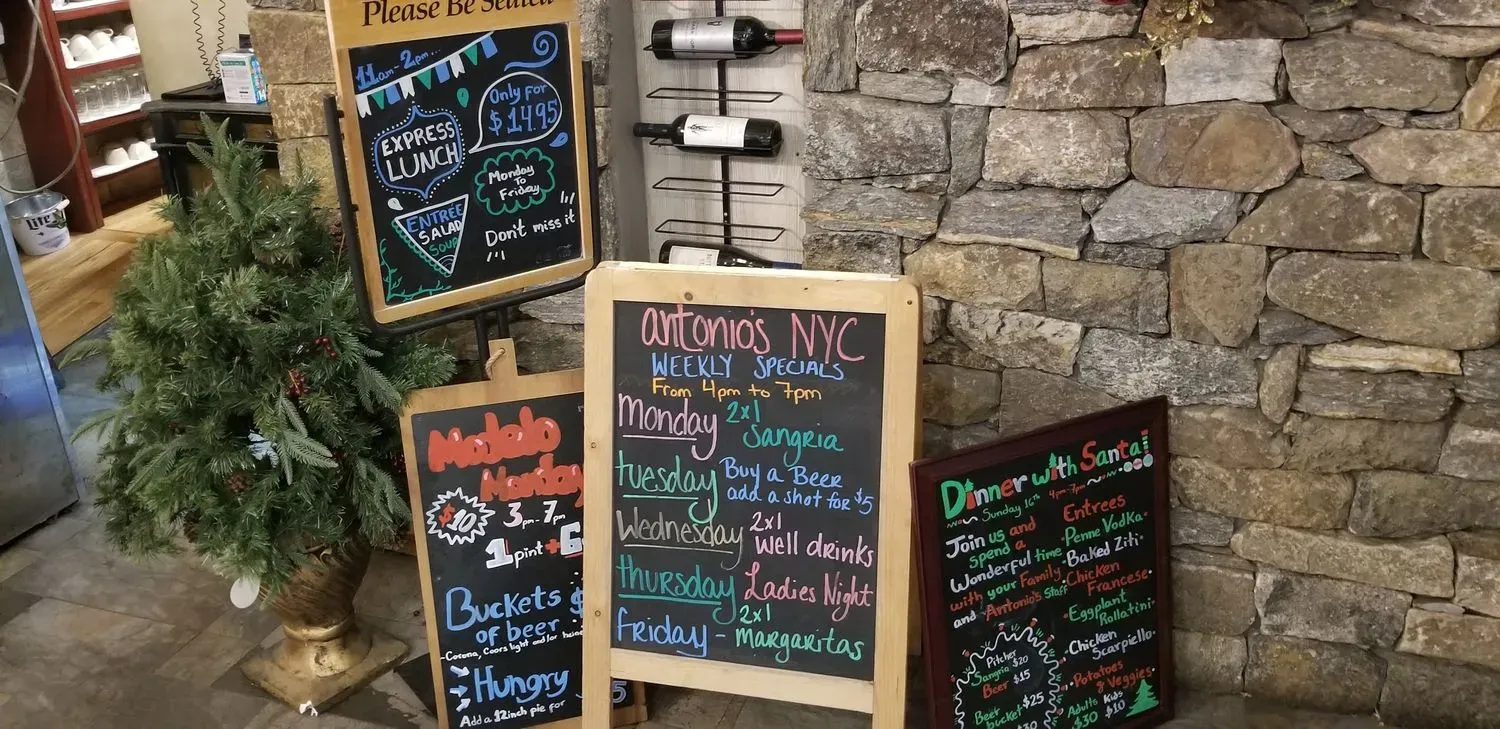 Please Be Seated
11am-2pm
Only for
$14.95
EXPRESS
LUNCH
Monday
To
Friday
ENTRÉE
SALAD
SOUP
Don't miss it
Lite
Modelo
Monday
$10
3pm-7pm
1 pint +
Buckets $
of beer
-Corona, Coors light and/or
Hungry
Add a 12inch pie for
5
antonio's NYC
WEEKLY SPECIALS
From 4pm to 7pm
Monday 2x1
Sangria
tuesday Buy a Beer
add a shot for $5
Wednesday 2x1
Well drinks
thursday Ladies Night
friday - 2x1
Margaritas
Dinner with Santa!
Sunday 16th 4pm-7pm
Join us and
spend a
Wonderful time
with your Family
and Antonio's Staff
Pitcher
Sangria $20
Beer $15
Beer bucket $25
$30
Entrees
Penne Vodka
Baked Ziti
Chicken
Francese
Eggplant
Rollatini
Chicken
Scarpiello
Potatoes
& Veggies
Adults Kids
$30 $10